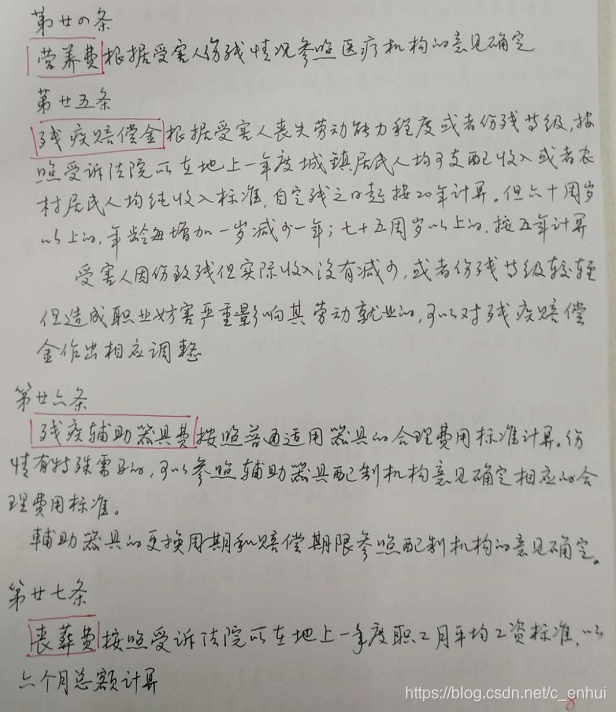 第廿四条
营养费根据受害人伤残情况参照医疗机构的意见确定
第廿五条
残疾赔偿金根据受害人丧失劳动能力程度或者伤残等级,按
照受诉法院所在地上一年度城镇居民人均可支配收入或者农
村居民人均纯收入标准,自定残之日起按20年计算。但六十周岁
以上的,年龄每增加一岁减少一年;七十五周岁以上的,按五年计算
受害人因伤致残但实际收入没有减少,或者伤残等级较轻
但造成职业妨害严重影响其劳动就业的,可以对残疾赔偿
金作出相应调整
第廿六条
残疾辅助器具费按照普通适用器具的合理费用标准计算。伤
情有特殊需要的,可以参照辅助器具配制机构意见确定相应的合
理费用标准。
辅助器具的更换周期和赔偿期限参照配制机构的意见确定。
第廿七条
丧葬费按照受诉法院所在地上一年度职工月平均工资标准,以
六个月总额计算
https://blog.csdn.net/c_enhui
8